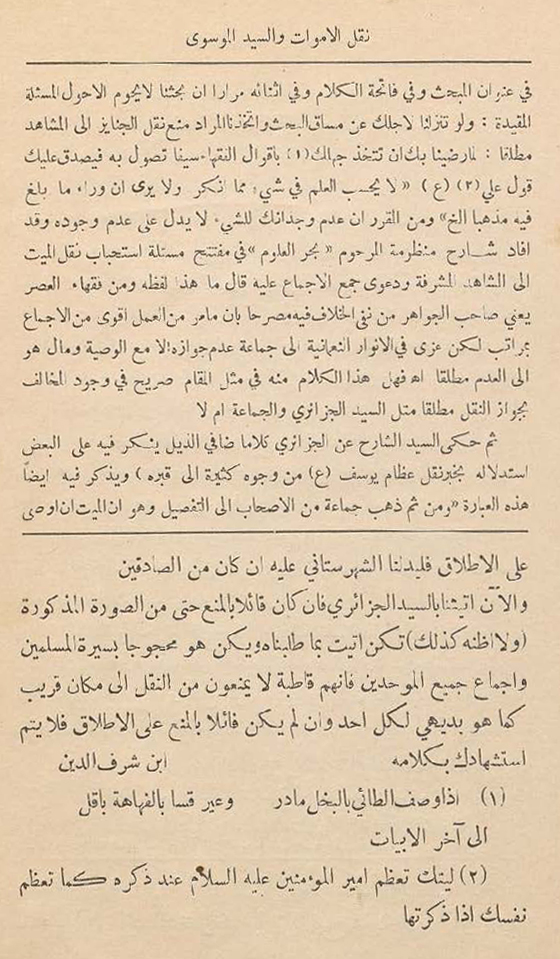 نقل الاموات والسيد الموسوى
في عنوان المبحث وفي فاتحة الكلام وفي اثنائه مرارا ان بحثنا لا يحوم الا حول المسئلة
المقيدة : ولو تنزلنا لاجلك عن مساق البحث واتخذنا المراد منع نقل الجنايز الى المشاهد
مطلقا : لما رضينا بك ان تتخذ جهالك (١) باقوال الفقهاء سيفا تصول به فيصدق عليك
قول علي (٢) (ع) « لا يحسب العلم في شيء مما انكر ولا يرى ان وراء ما بلغ
فيه مذهبا الخ » ومن المقرر ان عدم وجدانك للشيء لا يدل على عدم وجوده وقد
افاد شارح منظومة المرحوم « بحر العلوم » في مفتتح مسئلة استحباب نقل الميت
الى المشاهد المشرفة ودعوى جمع الاجماع عليه قال ما هذا لفظه ومن فقهاء العصر
يعني صاحب الجواهر من نفى الخلاف فيه مصرحا بان مامر من العمل اقوى من الاجماع
بمراتب لكن عزى في الانوار النعمانية الى جماعة عدم جوازه الا مع الوصية ومال هو
الى العدم مطلقا اه فهل هذا الكلام منه في مثل المقام صريح في وجود المخالف
بجواز النقل مطلقا مثل السيد الجزائري والجماعة ام لا
ثم حكى السيد الشارح عن الجزائري كلاما ضافي الذيل ينكر فيه على البعض
استدلاله بخبر نقل عظام يوسف (ع) من وجوه كثيرة الى قبره ) ويذكر فيه ايضاً
هذه العبارة « ومن ثم ذهب جماعة من الاصحاب الى التفصيل وهو ان الميت ان اوصى
على الاطلاق فليدلنا الشهرستاني عليه ان كان من الصادقين
والآن اتيتنا بالسيد الجزائري فان كان قائلا بالمنع حتى من الصورة المذكورة
(ولا اظنه كذلك) تكن اتيت بما طلبناه ويكن هو محجوجا بسيرة المسلمين
واجماع جميع الموحدين فانهم قاطبة لا يمنعون من النقل الى مكان قريب
كما هو بديهي لكل احد وان لم يكن قائلا بالمنع على الاطلاق فلا يتم
استشهادك بكلامه ابن شرف الدين
(١) اذا وصف الطائي بالبخل مادر وعير قسا بالفهاهة باقل
الى آخر الابيات
(٢) ليتك تعظم امير المؤمنين عليه السلام عند ذكره كما تعظم
نفسك اذا ذكرتها